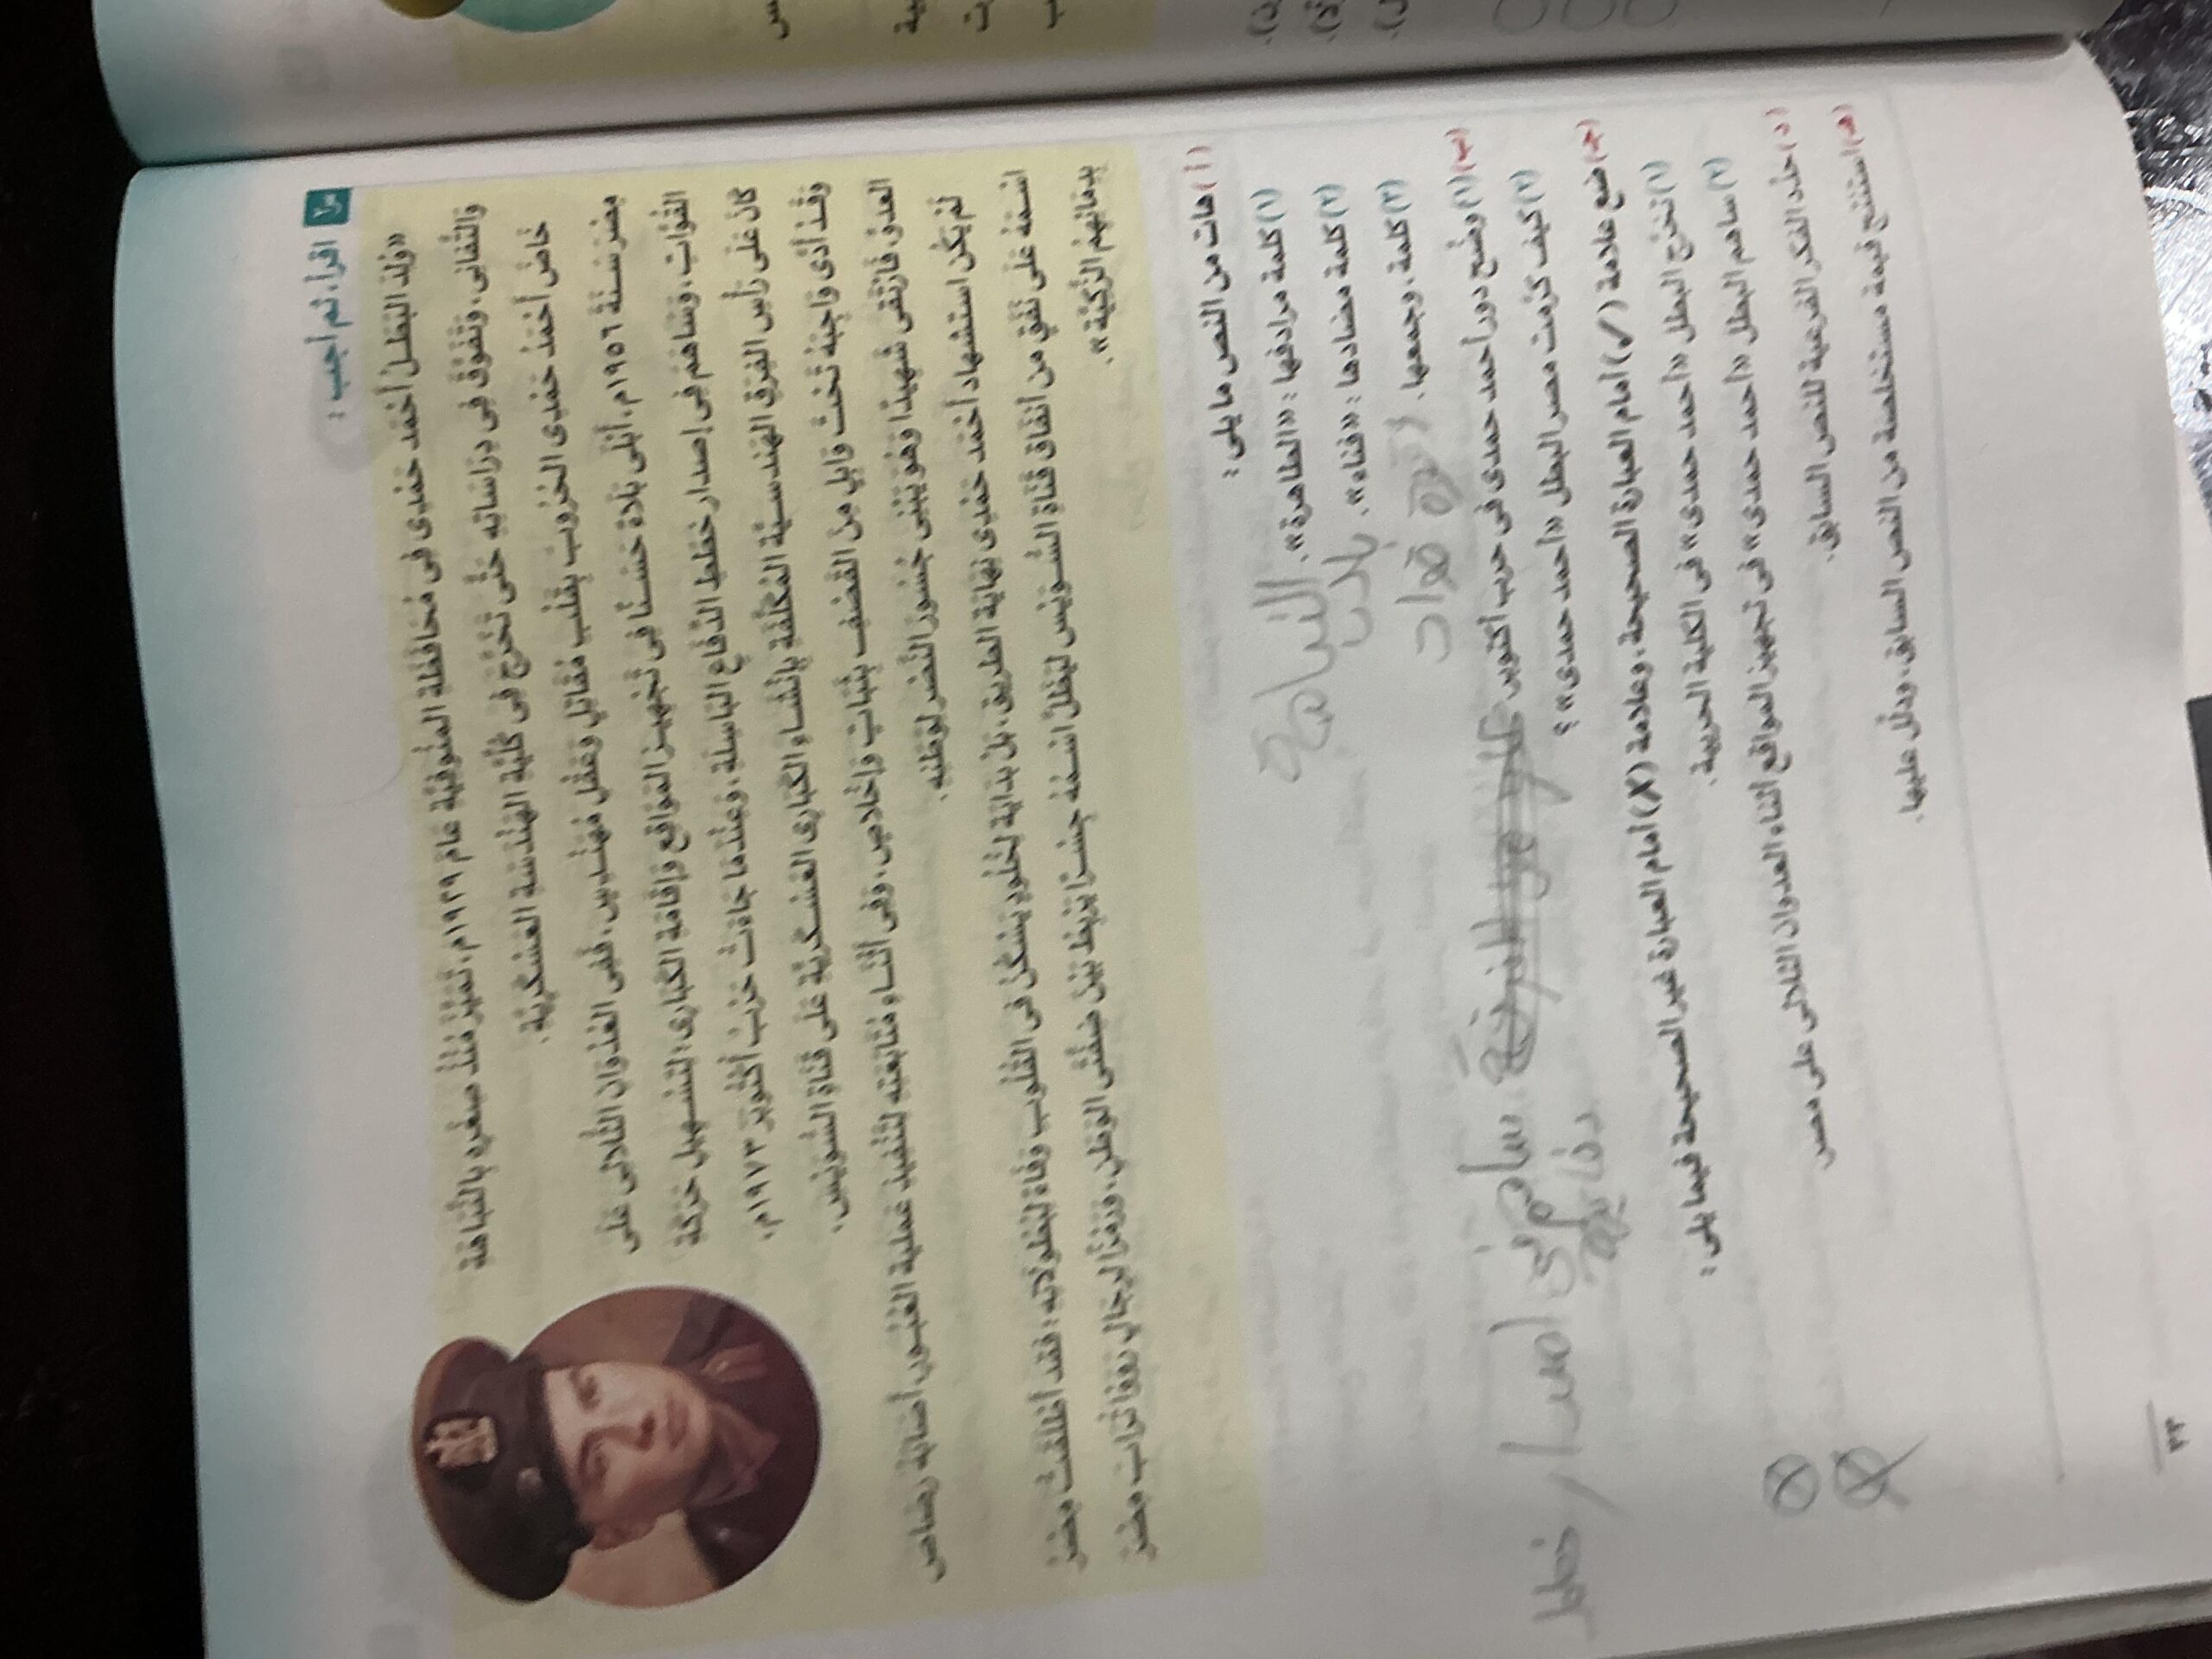 ١٠ اقرأ، ثم أجب :
«وُلِدَ البَطَلُ أَحْمَد حَمْدِى فِى مُحَافَظَةِ المنُوفِيَّة عَامَ ١٩٢٩م، تَمَيَّزَ مُنْذُ صِغَرِهِ بِالنَّبَاهَةِ
وَالتَّفَانِى، وَتَفَوَّقَ فِى دِرَاسَاتِهِ حَتَّى تَخَرَّجَ فِى كُلِّيَّةِ الهَنْدَسَةِ العَسْكَرِيَّةِ.
خَاضَ أَحْمَدُ حَمْدِى الحُرُوبَ بِقَلْبِ مُقَاتِلٍ وَعَقْلِ مُهَنْدِسٍ، فَفِى العُدْوَانِ الثُّلَاثِى عَلَى
مِصْرَ سَنَةَ ١٩٥٦م، أَبْلَى بَلَاءً حَسَنًا فِى تَجْهِيزِ المَوَاقِعِ وَإِقَامَةِ الكَبَارِى؛ لِتَسْهِيلِ حَرَكَةِ
القُوَّاتِ، وَسَاهَمَ فِى إِصدار خُطَطِ الدِّفَاعِ البَاسِلَةِ، وَعِنْدَمَا جَاءَتْ حَرْبُ أُكْتُوبَرَ ١٩٧٣م،
كَانَ عَلَى رَأْسِ الفِرَقِ الهَنْدسيَّةِ المُكَلَّفَةِ بِإِنْشَاءِ الكَبَارِى العَسْكَرِيَّةِ عَلَى قَنَاةِ السُّوَيْسِ،
وَقَدْ أَدَّى وَاجِبَهُ تَحْتَ وَابِلٍ مِنَ القَصْفِ بِثَبَاتٍ وَإِخْلَاصٍ، وَفِى أَثْنَاءِ مُتَابَعَتِهِ لِتَنْفِيذِ عَمَليةِ العُبُورِ، أَصَابَهُ رَصَاصُ
العدوِّ، فَارْتَقَى شَهِيدًا وَهُوَ يَبْنِى جُسُورَ النَّصْرِ لِوَطَنِهِ.
لَمْ يَكُنِ اسْتِشْهَادُ أَحْمَد حَمْدِى نِهَايَةَ الطَّرِيقِ، بَلْ بِدَايَةً لِخُلُودٍ يَسْكُنُ فِى القُلُوبِ وَفَاءً لِبُطُولَاتِهِ؛ فَقَدْ أَطْلَقَتْ مِصْرُ
اسْمَهُ عَلَى نَفَقٍ مِن أَنْفَاقِ قَنَاةِ السُّوَيْسِ لِيَظَلَّ اسْمُهُ جِسْرًا يَرْبِطُ بَيْنَ ضِفَّتَى الوَطَنِ، وَرَمْزًا لِرِجَالٍ رَوَوْا تُرَابَ مِصْرَ
بِدِمَائِهِمُ الزَّكِيَّةِ».
( أ ) هات من النص ما يلى :
(١) كلمة مرادفها : «الطاهرة». النباهة
(٢) كلمة مضادها : «فناء». بلاء
(٣) كلمة، وجمعها. قوات
(ب) (١) وضِّح دور أحمد حمدى فى حرب أكتوبر. ساهم فى اصدار خطط
دفاعية
(٢) كيف كرَّمت مصر البطل «أحمد حمدى» ؟
(جـ) ضع علامة (✓) أمام العبارة الصحيحة، وعلامة (X) أمام العبارة غير الصحيحة فيما يلى :
(١) تخرَّج البطل «أحمد حمدى» فى الكلية الحربية.
(٢) ساهم البطل «أحمد حمدى» فى تجهيز المواقع أثناء العدوان الثلاثى على مصر.
( د ) حدِّد الفكر الفرعية للنص السابق.
(هـ) استنتج قيمة مستخلصة من النص السابق، ودلِّل عليها.